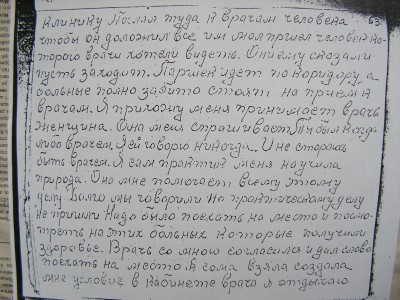 63
клинику Послал туда к врачам человека
чтобы он доложил все им мол пришел человек ко-
торого врачи хотели видеть. Они ему сказали
пусть заходит. Парней идет по коридору, а
больные полно забито стоят на прием к
врачам. Я прихожу меня принимает врач
женщина. Она меня спрашивает Ты был когда
либо врачем. Я ей говорю никогда. И не стараюсь
быть врачем. Я сам практик меня научила
природа. Она мне помогает всему этому
делу. Долго мы говорили На практическому делу
не пришли Надо было поехать на место и посмо-
треть на тих больных которые получили
здоровье. Врач со мною согласился и дал слово
поехать на место А сама взяла создала
мне условие в кабинете врача я отдыхаю